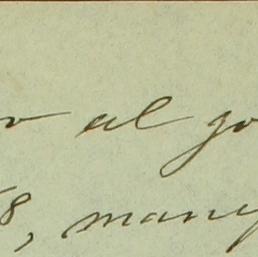 al go
8, many